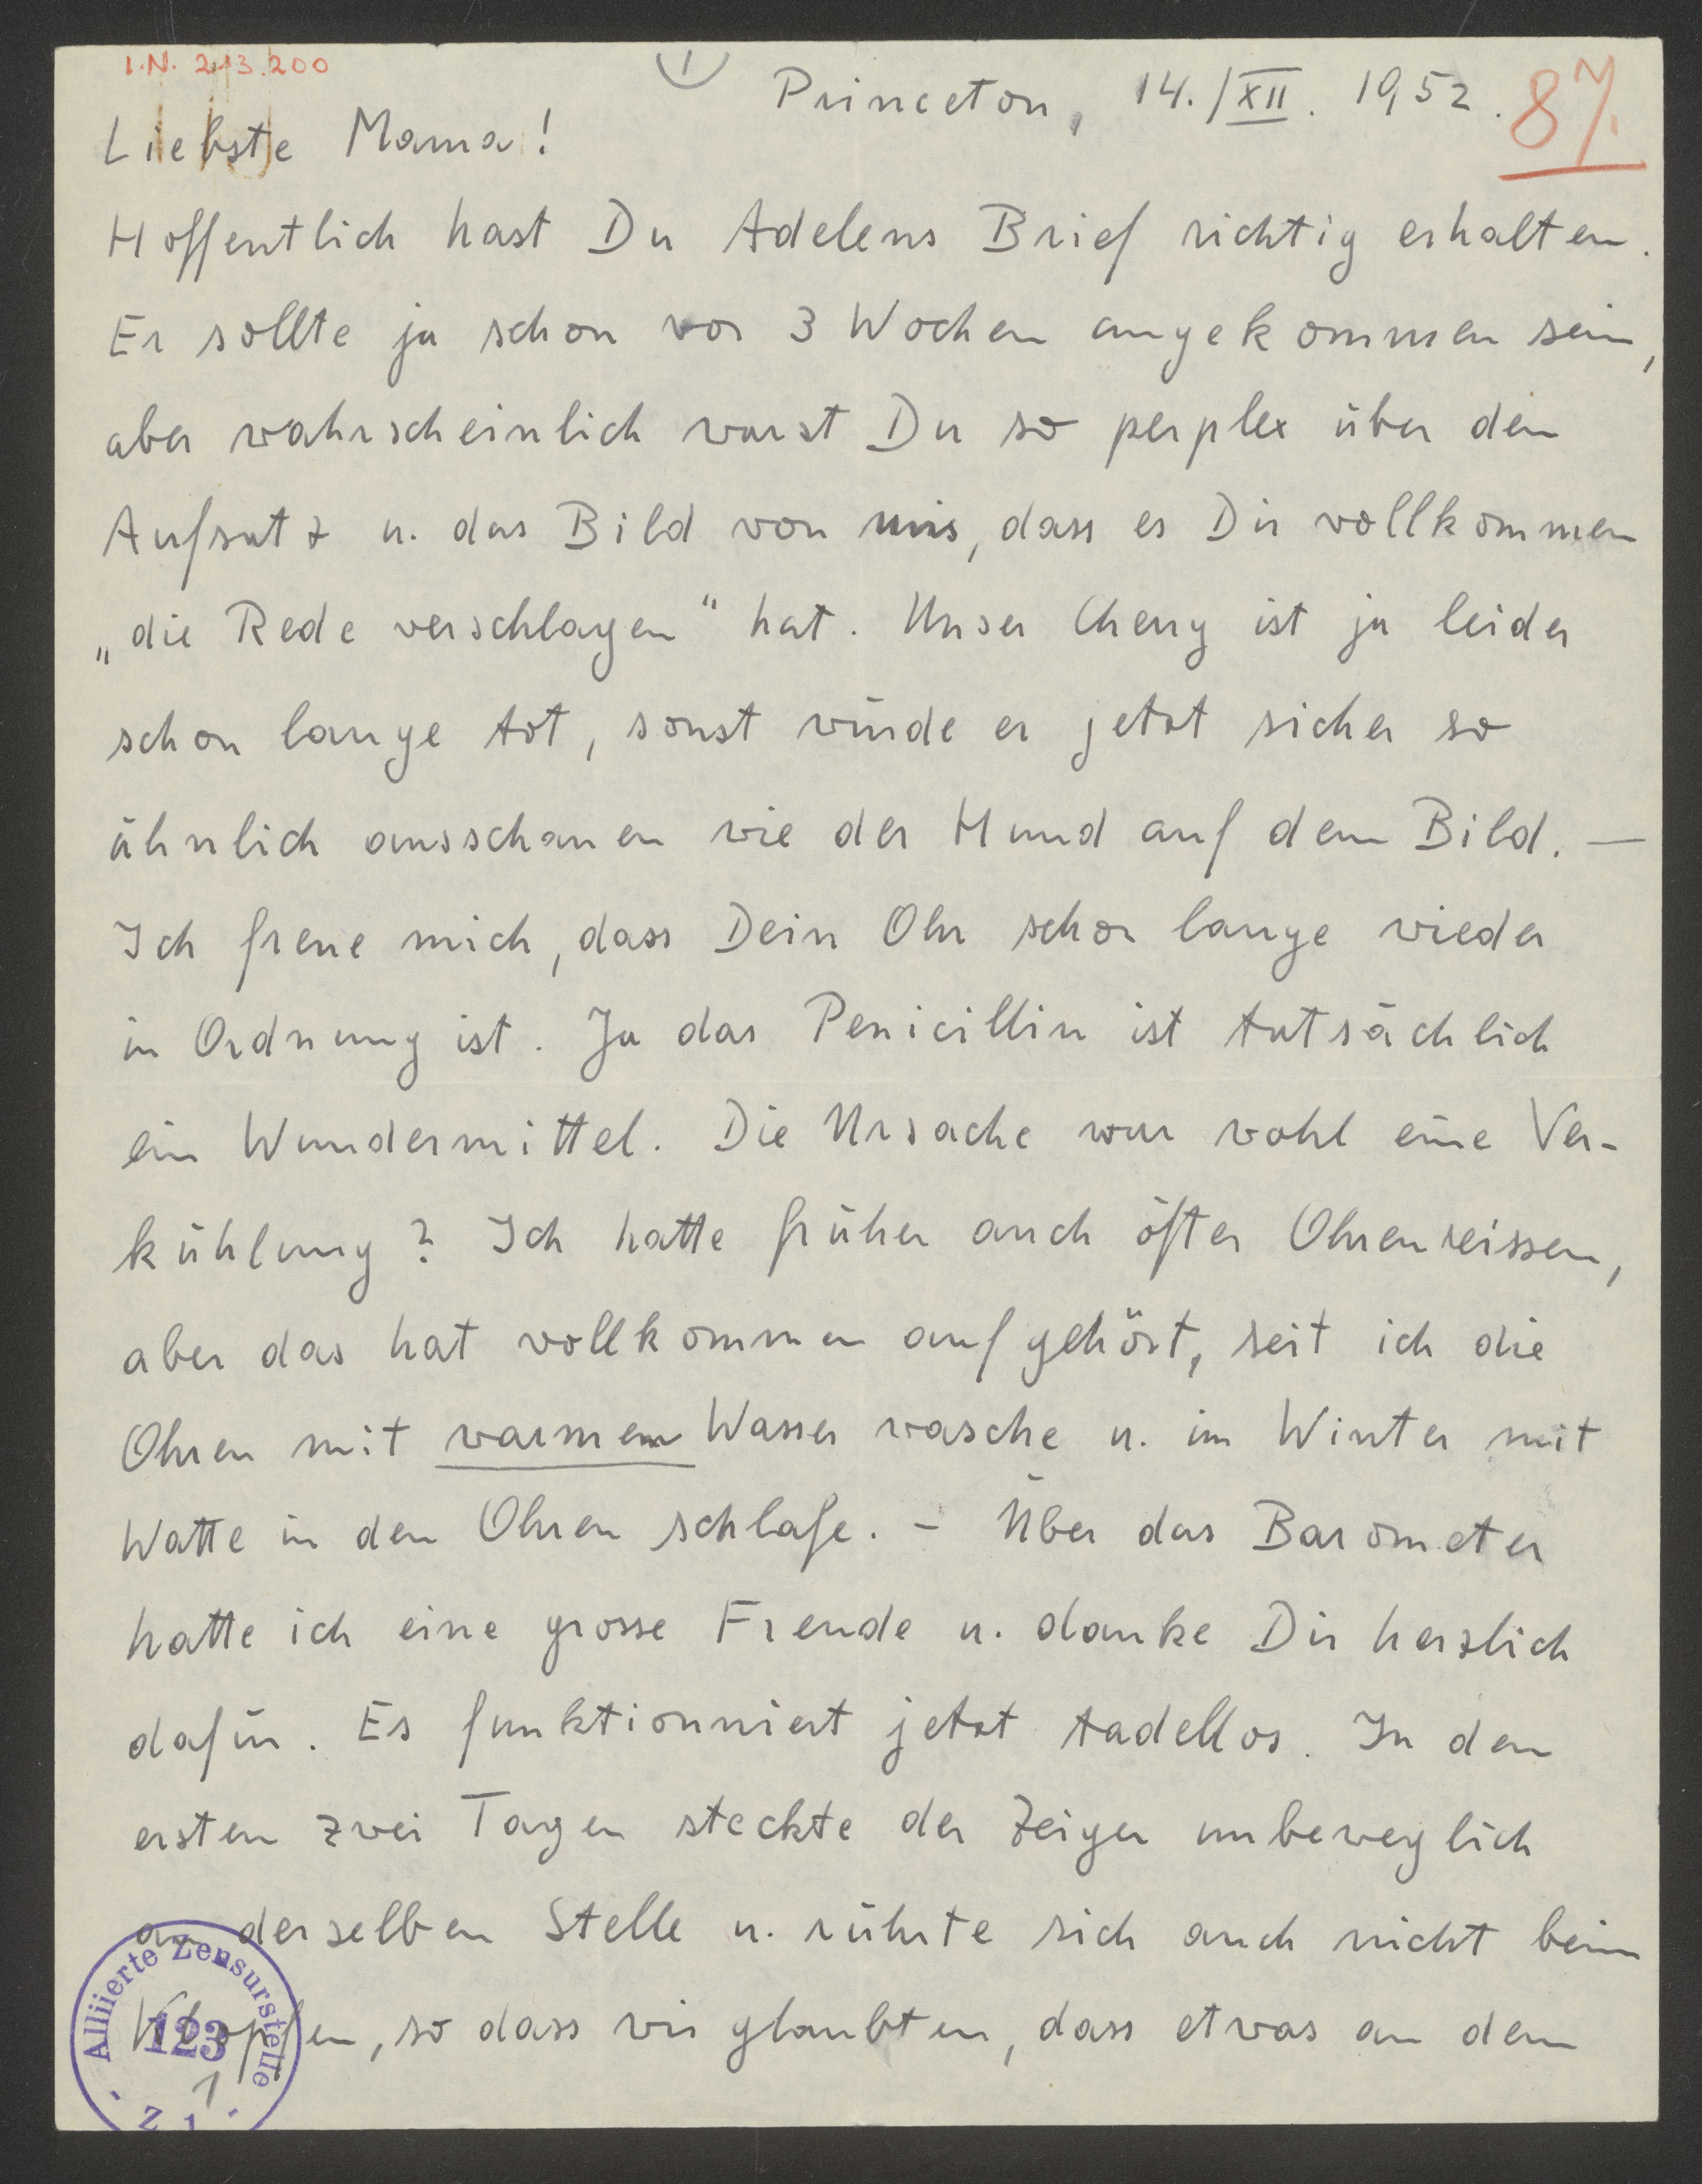 I.N. 213.200
1
Princeton, 14./XII. 1952.
87.
Liebste Mama!
Hoffentlich hast Du Adelens Brief richtig erhalten.
Er sollte ja schon vor 3 Wochen angekommen sein,
aber wahrscheinlich warst Du so perplex über den
Aufsatz u. das Bild von mir, dass es Dir vollkommen
„die Rede verschlagen" hat. Unser Cheng ist ja leider
schon lange tot, sonst würde er jetzt sicher so
ähnlich ausschauen wie der Hund auf dem Bild. —
Ich freue mich, dass Dein Ohr schon lange wieder
in Ordnung ist. Ja das Penicillin ist tatsächlich
ein Wundermittel. Die Ursache war wohl eine Ver-
kühlung? Ich hatte früher auch öfter Ohrenreissen,
aber das hat vollkommen aufgehört, seit ich die
Ohren mit warmem Wasser wasche u. im Winter mit
Watte in den Ohren schlafe. - Über das Barometer
hatte ich eine grosse Freude u. danke Dir herzlich
dafür. Es funktionniert jetzt tadellos. In den
ersten zwei Tagen steckte der Zeiger unbeweglich
an derselben Stelle u. rührte sich auch nicht beim
Klopfen, so dass wir glaubten, dass etwas an dem
Alliierte Zensurstelle
123
1
Z 1